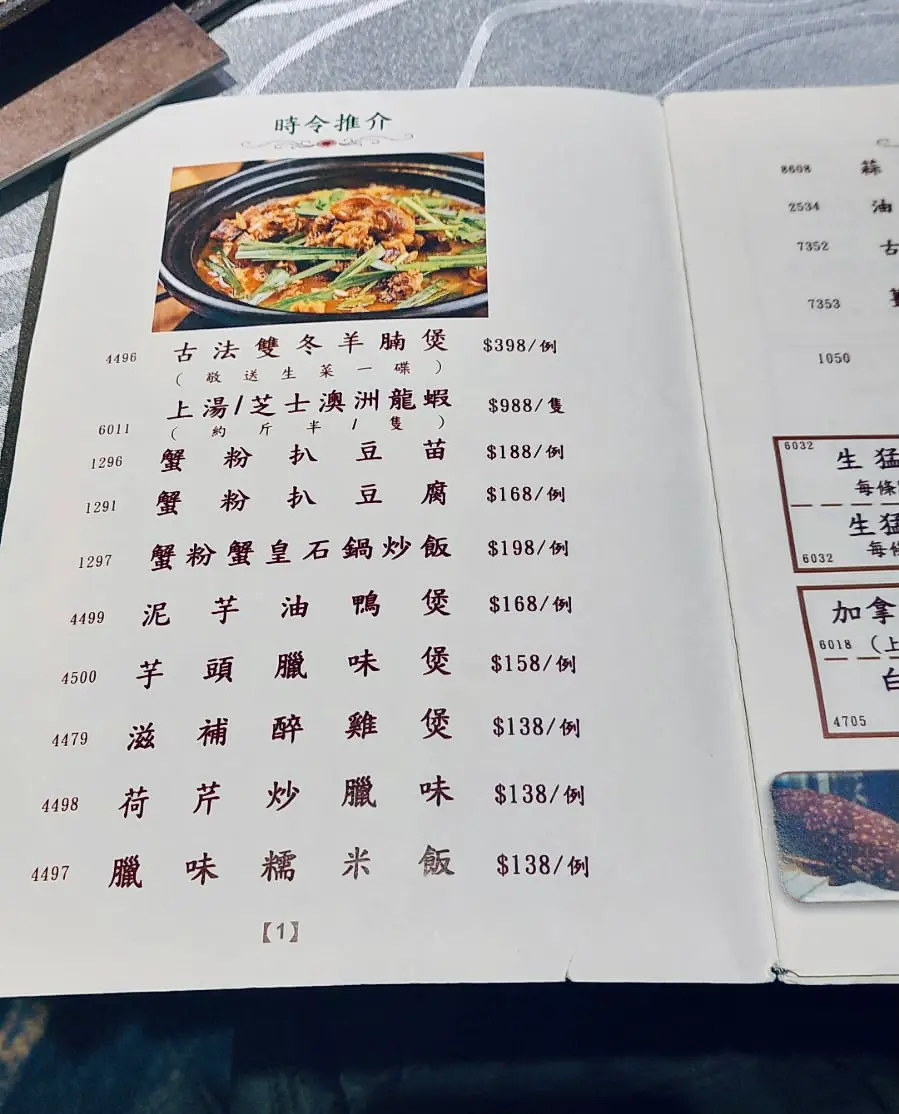 時令推介
4496 古法雙冬羊腩煲 $398/例
(敬送生菜一碟)
6011 上湯/芝士澳洲龍蝦 $988/隻
(約斤半/隻)
1296 蟹粉扒豆苗 $188/例
1291 蟹粉扒豆腐 $168/例
1297 蟹粉蟹皇石鍋炒飯 $198/例
4499 泥芋油鴨煲 $168/例
4500 芋頭臘味煲 $158/例
4479 滋補醉雞煲 $138/例
4498 荷芹炒臘味 $138/例
4497 臘味糯米飯 $138/例
【1】
8608 蒜
2534 油
7352 古
7353
1050
6032 生猛
每條
生猛
6032 每條
加拿
6018 (上
白
4705